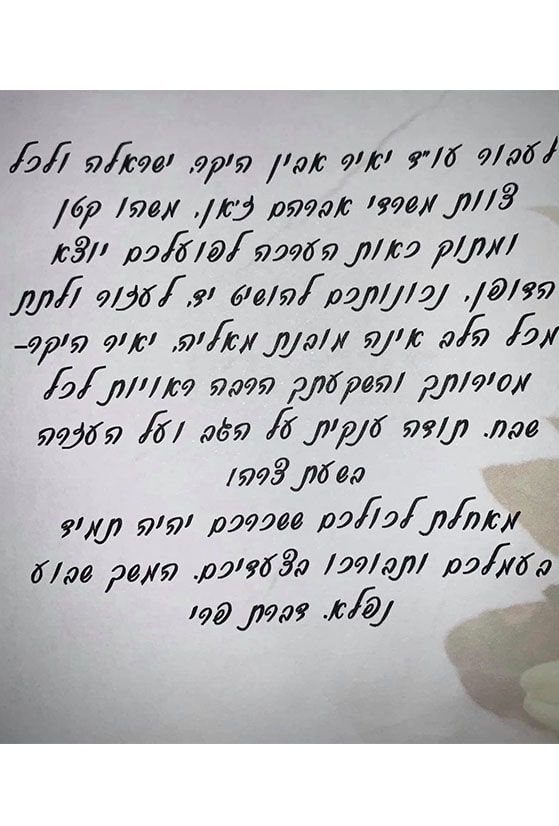 לעבור עו"ד יאיר אבין היקר, ישראלה ולכל
צוות משרדי אברהם ז'אן. משהו קטן
ומתוק כאות הערכה לפועלכם יוצא
הדופן. נכונותכם להושיט יד, לעזור ולתת
מכל הלב אינה מובנת מאליה. יאיר היקר-
מסירותך והשקעתך הרבה ראויות לכל
שבח. תודה ענקית על הגב ועל העזרה
בשעת צרה!
מאחלת לכולכם ששכרכם יהיה תמיד
בעמלכם ותבורכו בצעדיכם. המשך שבוע
נפלא. דברת פרי